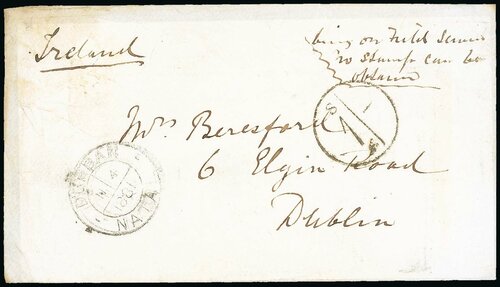 Ireland
being on Field Service
no stamps can be
obtained
Mrs Beresford
6 Elgin Road
Dublin
DURBAN
NATAL